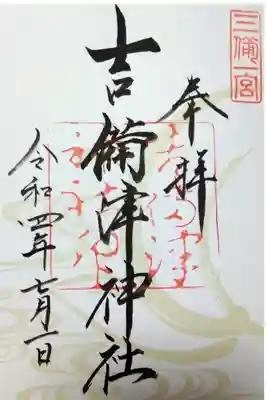 三備一宮
奉拝
吉備津神社
令和四年七月一日